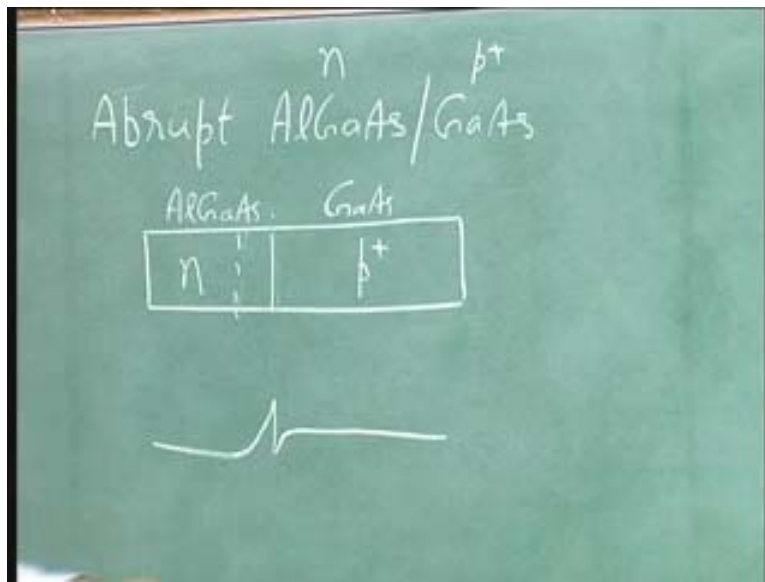 n p+
Abrupt AlGaAs/GaAs
AlGaAs. GaAs
n p+